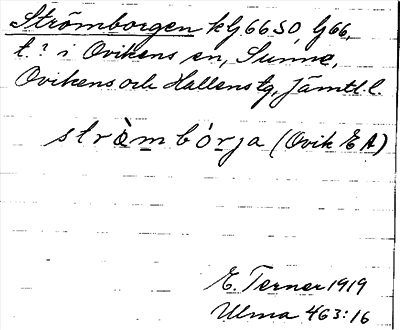 Strömborgen kG66SO, G66,
t.? i Ovikens sn, Sunne,
Ovikens och Hallens tg, Jämtl. l.
strö̀mbórja (Ovik E A)
E. Terner 1919
Ulma 463:16